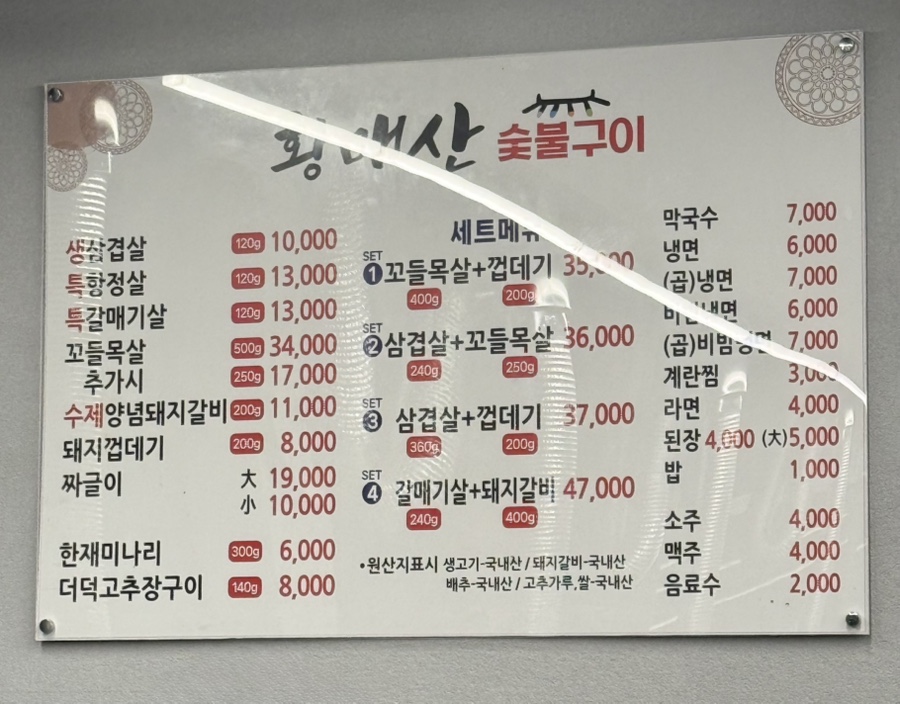 황매산 숯불구이
생삼겹살 120g 10,000
특항정살 120g 13,000
특갈매기살 120g 13,000
꼬들목살 500g 34,000
추가시 250g 17,000
수제양념돼지갈비 200g 11,000
돼지껍데기 200g 8,000
짜글이 大 19,000
小 10,000
한재미나리 300g 6,000
더덕고추장구이 140g 8,000
세트메뉴
SET 1 꼬들목살+껍데기 35,000
400g 200g
SET 2 삼겹살+꼬들목살 36,000
240g 250g
SET 3 삼겹살+껍데기 37,000
360g 200g
SET 4 갈매기살+돼지갈비 47,000
240g 400g
•원산지표시 생고기-국내산 / 돼지갈비-국내산
배추-국내산 / 고추가루,쌀-국내산
막국수 7,000
냉면 6,000
(곱)냉면 7,000
비빔냉면 6,000
(곱)비빔냉면 7,000
계란찜 3,000
라면 4,000
된장 4,000 (大)5,000
밥 1,000
소주 4,000
맥주 4,000
음료수 2,000